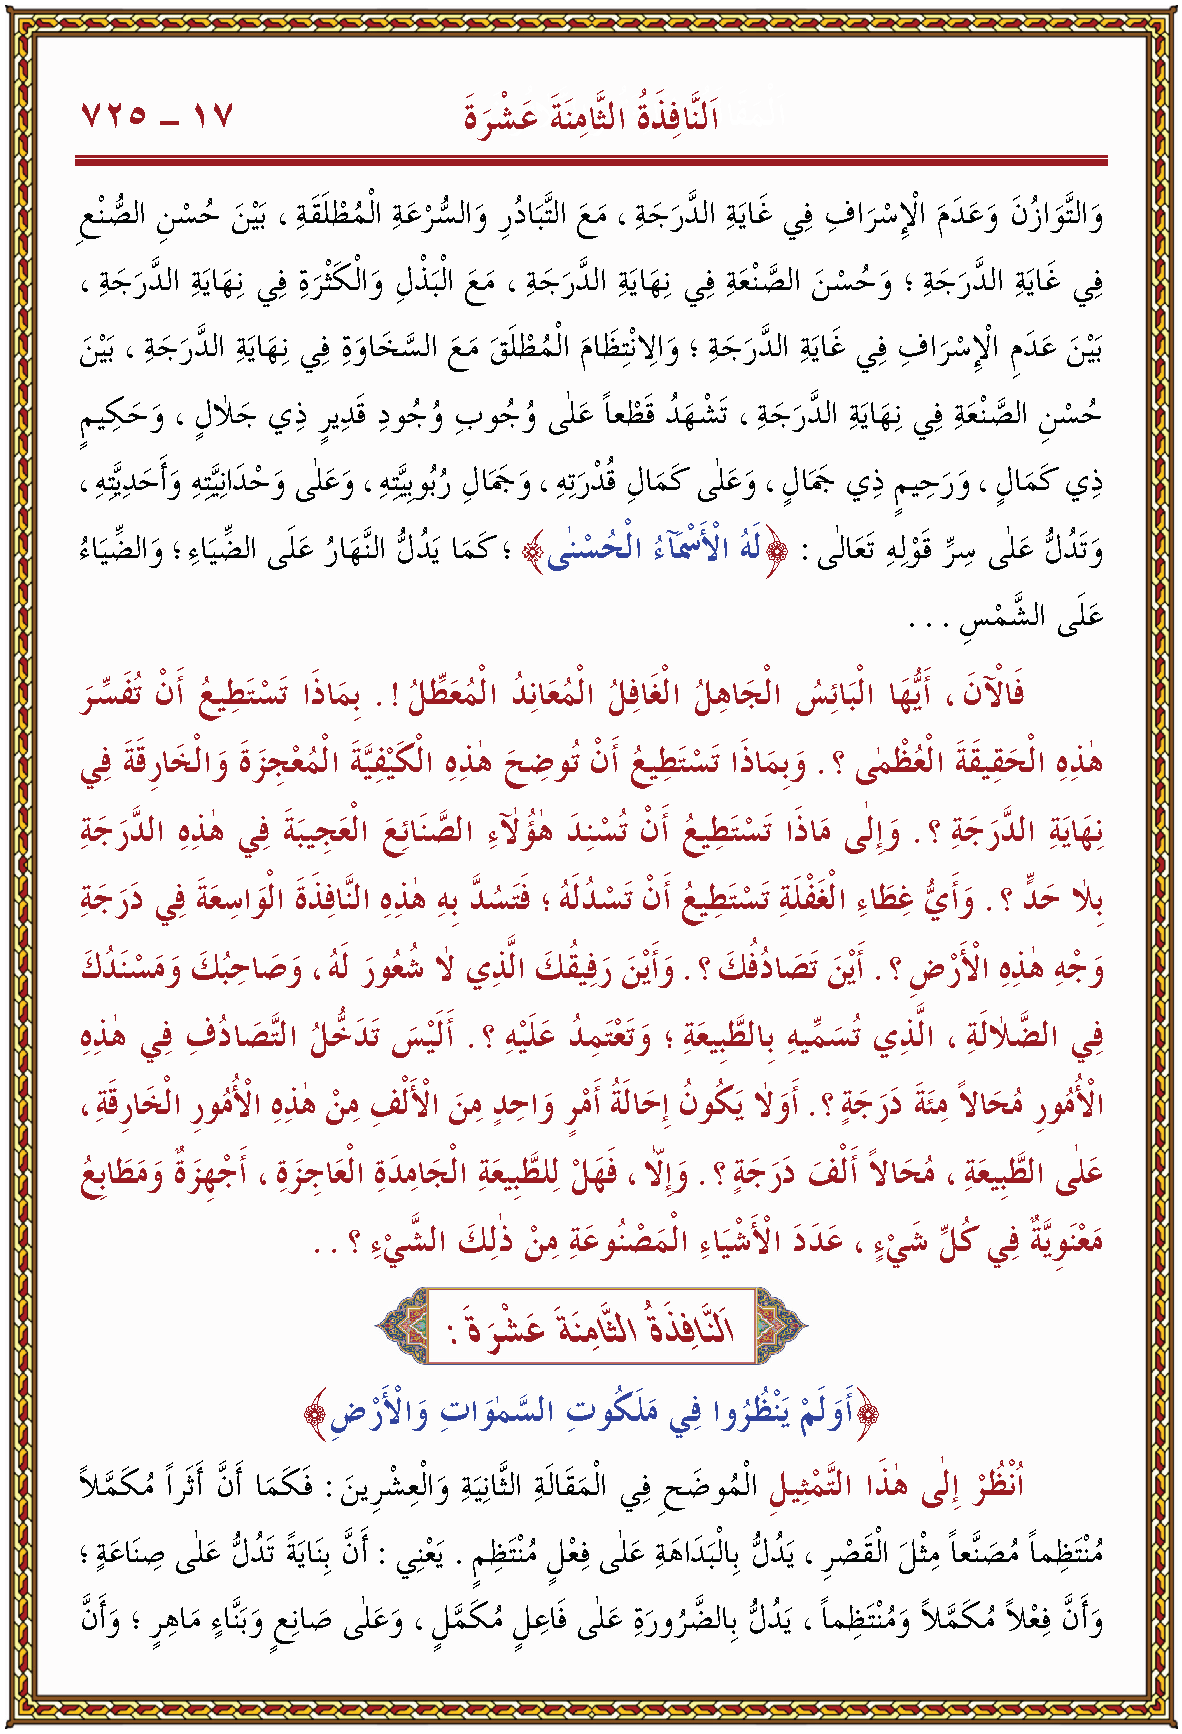 اَلنَّافِذَةُ الثَّامِنَةَ عَشْرَةَ ١٧ ـ ٧٢٥
وَالتَّوَازُنَ وَعَدَمَ الْإِسْرَافِ فِي غَايَةِ الدَّرَجَةِ ، مَعَ التَّبَادُرِ وَالسُّرْعَةِ الْمُطْلَقَةِ ، بَيْنَ حُسْنِ الصُّنْعِ
فِي غَايَةِ الدَّرَجَةِ ؛ وَحُسْنَ الصَّنْعَةِ فِي نِهَايَةِ الدَّرَجَةِ ، مَعَ الْبَذْلِ وَالْكَثْرَةِ فِي نِهَايَةِ الدَّرَجَةِ ،
بَيْنَ عَدَمِ الْإِسْرَافِ فِي غَايَةِ الدَّرَجَةِ ؛ وَالِانْتِظَامَ الْمُطْلَقَ مَعَ السَّخَاوَةِ فِي نِهَايَةِ الدَّرَجَةِ ، بَيْنَ
حُسْنِ الصَّنْعَةِ فِي نِهَايَةِ الدَّرَجَةِ ، تَشْهَدُ قَطْعاً عَلٰى وُجُوبِ وُجُودِ قَدِيرٍ ذِي جَلَالٍ ، وَحَكِيمٍ
ذِي كَمَالٍ ، وَرَحِيمٍ ذِي جَمَالٍ ، وَعَلٰى كَمَالِ قُدْرَتِهِ ، وَجَمَالِ رُبُوبِيَّتِهِ ، وَعَلٰى وَحْدَانِيَّتِهِ وَأَحَدِيَّتِهِ ،
وَتَدُلُّ عَلٰى سِرِّ قَوْلِهِ تَعَالٰى : ﴿لَهُ الْأَسْمَآءُ الْحُسْنٰى﴾ ؛ كَمَا يَدُلُّ النَّهَارُ عَلَى الضِّيَاءِ ؛ وَالضِّيَاءُ
عَلَى الشَّمْسِ . . .
فَالْآنَ ، أَيُّهَا الْبَائِسُ الْجَاهِلُ الْغَافِلُ الْمُعَانِدُ الْمُعَطِّلُ ! . بِمَاذَا تَسْتَطِيعُ أَنْ تُفَسِّرَ
هٰذِهِ الْحَقِيقَةَ الْعُظْمٰى ؟ . وَبِمَاذَا تَسْتَطِيعُ أَنْ تُوضِحَ هٰذِهِ الْكَيْفِيَّةَ الْمُعْجِزَةَ وَالْخَارِقَةَ فِي
نِهَايَةِ الدَّرَجَةِ ؟ . وَإِلٰى مَاذَا تَسْتَطِيعُ أَنْ تُسْنِدَ هٰؤُلَآءِ الصَّنَائِعَ الْعَجِيبَةَ فِي هٰذِهِ الدَّرَجَةِ
بِلَا حَدٍّ ؟ . وَأَيُّ غِطَاءِ الْغَفْلَةِ تَسْتَطِيعُ أَنْ تَسْدُلَهُ ؛ فَتُسَدَّ بِهِ هٰذِهِ النَّافِذَةَ الْوَاسِعَةَ فِي دَرَجَةِ
وَجْهِ هٰذِهِ الْأَرْضِ ؟ . أَيْنَ تَصَادُفُكَ ؟ . وَأَيْنَ رَفِيقُكَ الَّذِي لَا شُعُورَ لَهُ ، وَصَاحِبُكَ وَمَسْنَدُكَ
فِي الضَّلَالَةِ ، الَّذِي تُسَمِّيهِ بِالطَّبِيعَةِ ؛ وَتَعْتَمِدُ عَلَيْهِ ؟ . أَلَيْسَ تَدَخُّلُ التَّصَادُفِ فِي هٰذِهِ
الْأُمُورِ مُحَالاً مِئَةَ دَرَجَةٍ ؟ . أَوَلَا يَكُونُ إِحَالَةُ أَمْرٍ وَاحِدٍ مِنَ الْأَلْفِ مِنْ هٰذِهِ الْأُمُورِ الْخَارِقَةِ ،
عَلٰى الطَّبِيعَةِ ، مُحَالاً أَلْفَ دَرَجَةٍ ؟ . وَإِلَّا ، فَهَلْ لِلطَّبِيعَةِ الْجَامِدَةِ الْعَاجِزَةِ ، أَجْهِزَةٌ وَمَطَابِعُ
مَعْنَوِيَّةٌ فِي كُلِّ شَيْءٍ ، عَدَدَ الْأَشْيَاءِ الْمَصْنُوعَةِ مِنْ ذٰلِكَ الشَّيْءِ ؟ . .
اَلنَّافِذَةُ الثَّامِنَةَ عَشْرَةَ :
﴿أَوَلَمْ يَنْظُرُوا فِي مَلَكُوتِ السَّمٰوَاتِ وَالْأَرْضِ﴾
اُنْظُرْ إِلٰى هٰذَا التَّمْثِيلِ الْمُوضَحِ فِي الْمَقَالَةِ الثَّانِيَةِ وَالْعِشْرِينَ : فَكَمَا أَنَّ أَثَراً مُكَمَّلاً
مُنْتَظِماً مُصَنَّعاً مِثْلَ الْقَصْرِ ، يَدُلُّ بِالْبَدَاهَةِ عَلٰى فِعْلٍ مُنْتَظِمٍ . يَعْنِي : أَنَّ بِنَايَةً تَدُلُّ عَلٰى صِنَاعَةٍ ؛
وَأَنَّ فِعْلاً مُكَمَّلاً وَمُنْتَظِماً ، يَدُلُّ بِالضَّرُورَةِ عَلٰى فَاعِلٍ مُكَمَّلٍ ، وَعَلٰى صَانِعٍ وَبَنَّاءٍ مَاهِرٍ ؛ وَأَنَّ